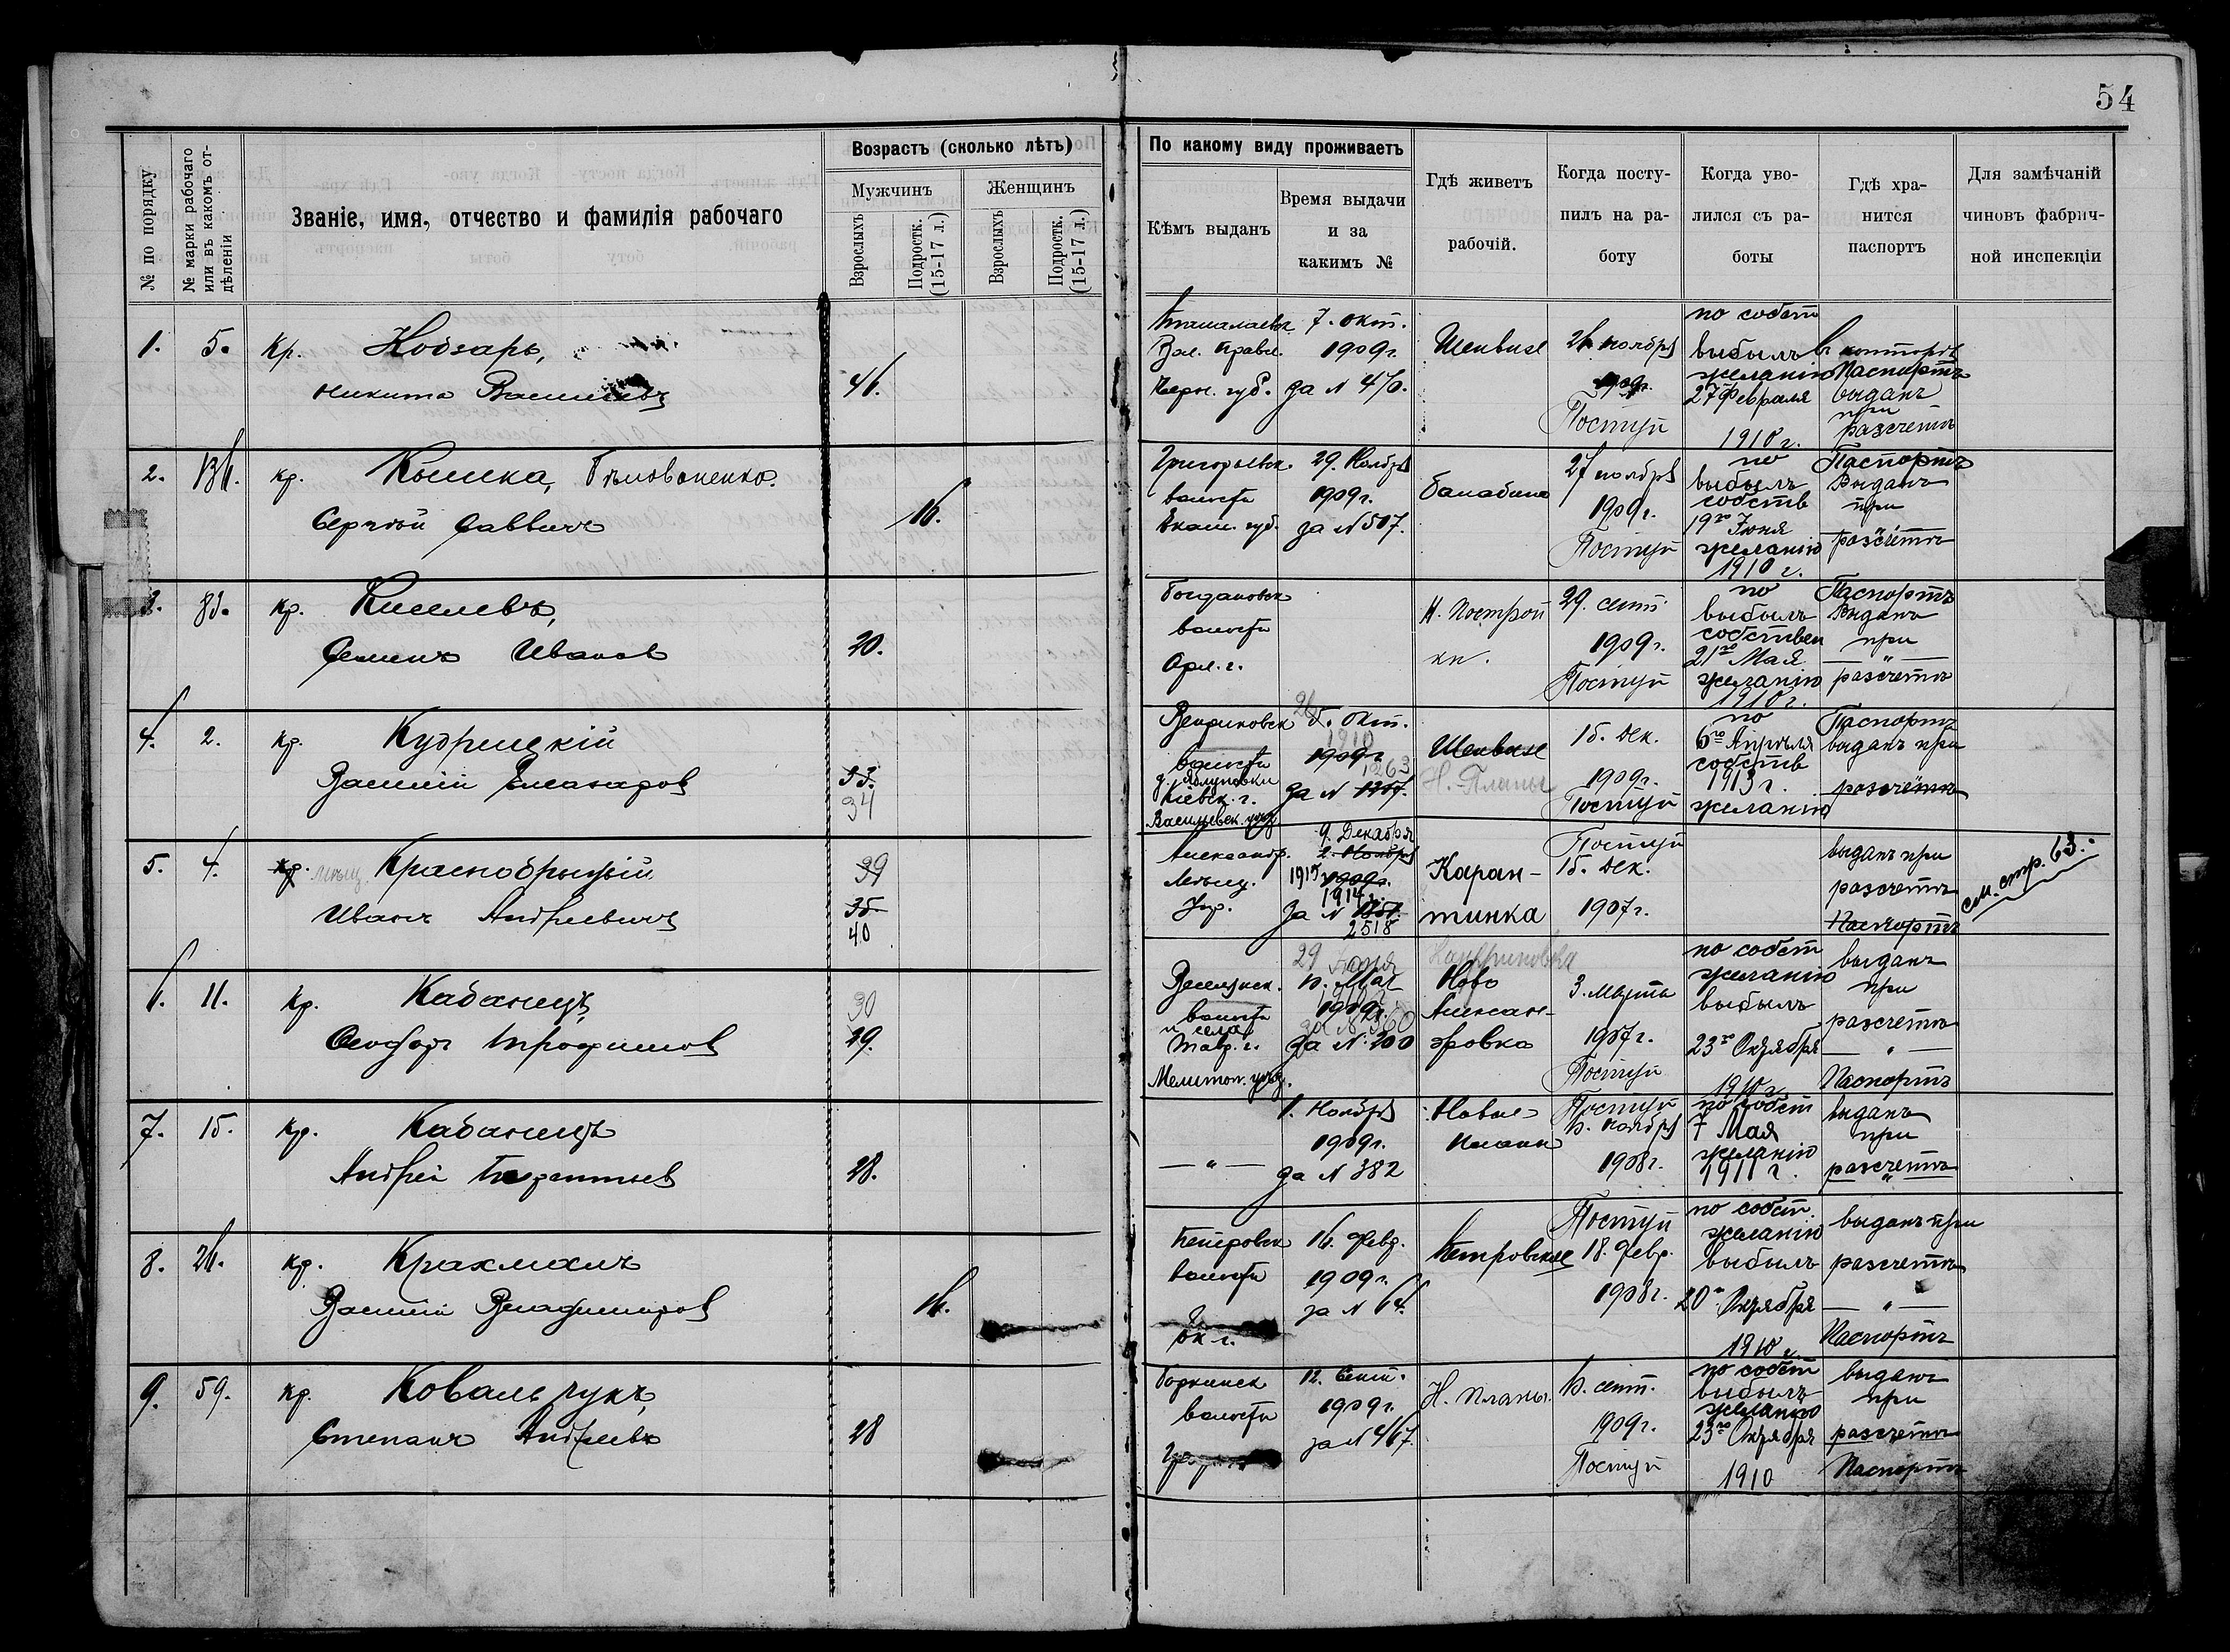 54
№ по порядку
№ марки рабочаго
или въ какомъ от-
дѣленіи
Званіе, имя, отчество и фамилія рабочаго
Возрастъ (сколько лѣтъ)
Мужчинъ
Женщинъ
Взрослыхъ
Подростк.
(15-17 л.)
Взрослыхъ
Подростк.
(15-17 л.)
По какому виду проживаетъ
Кѣмъ выданъ
Время выдачи
и за
какимъ №
Гдѣ живетъ
рабочій.
Когда посту-
пилъ на ра-
боту
Когда уво-
лился съ ра-
боты
Гдѣ хра-
нится
паспортъ
Для замѣчаній
чиновъ фабрич-
ной инспекціи
1. 5. Кр. Кобзарь,
Никита
46.
Вол. Правл.
Херн. губ.
7. окт.
1909 г.
за N 470.
Шенвизе
26 ноября
1909 г.
Поступ
по собст
выбылъ
желанію
27 Февраля
1910 г.
въ конторѣ
Паспортъ
выданъ
при
разсчетѣ
2. 136. кр. Кышка,
Сергѣй Саввичъ
16.
Григорьевск.
волости
Екат. губ.
29. Ноября
1909 г.
за N 507.
балабино
27 ноября
1909 г.
Поступ
по
выбылъ
собств
19го Іюня
желанію
1910 г.
Паспортъ
Выданъ
при
разсчетѣ
3. 83. кр. Киселевъ,
Семенъ Иванов
20.
Богдановск
волости
Орл. г.
Н. Построй
ки.
29. сент.
1909 г.
Поступ
по
выбылъ
собствен
21го Мая
желанію
1910 г.
Паспортъ
Выданъ
при
— " —
разсчетѣ
4. 2. кр. Кудрицкій
Василій Елеазаров
33.
34
волости
Кіевск. г.
Васильевск. уѣзд
26
5. окт.
1910
1909 г
1263
за N 1257.
Шенвизе
Н. Планы
15. Дек.
1909 г.
Поступ
по
6го Апрѣля
собств
1913 г.
желанію
Паспортъ
выданъ при
разсчетѣ
5. 4. кр. мѣщ. Краснобрыжій
Иванъ Андреевичъ
39
35
40
Александр.
Мѣщ.
Упр.
9. Декабря
2. Ноября
1915 1909 г.
1914 г.
За N 1251.
2518
Каран-
тинка
Поступ
15. Дек.
1907 г.
выданъ при
разсчетѣ
Паспортъ
см. стр. 63.
6. 11. кр. Кабанецъ
Феодоръ Трофимов
30
29.
Веселянск.
волости
и села
Тавр. г.
Мелитоп. уѣзд.
29 Іюня
15. Мая
1910 г.
1909 г.
за N 360
За N. 200
Ново
Алексан-
дровка
3. Марта
1907 г.
Поступ
по собст
желанію
выбылъ
23го Октября
1910 г.
выданъ
при
разсчетѣ
— " —
Паспортъ
7. 15. кр. Кабанецъ
Андрей Терентьев
28.
— " —
1. Ноября
1909 г.
за N 382
Новые
Планы
Поступ
15. ноября
1908 г.
по собст
7 Мая
желанію
1911 г.
выданъ
при
разсчетѣ
8. 26. кр. Крахмалъ
Василій Владимиров
16.
Петровск
волости
Ек г.
16. Февр.
1909 г.
за N 64.
Петровское
Поступ
18. февр.
1908 г.
по собст.
желанію
выбылъ
20го Октября
1910 г.
выданъ при
разсчетѣ
— " —
Паспортъ
9. 59. кр. Ковальчукъ
Степанъ Андреевъ
28
волости
12. Сент.
1909 г.
за N 467.
Н. Планы.
15. сент.
1909 г.
Поступ
по собст
выбылъ
желанію
23го Октября
1910
выданъ
при
разсчетѣ
Паспортъ